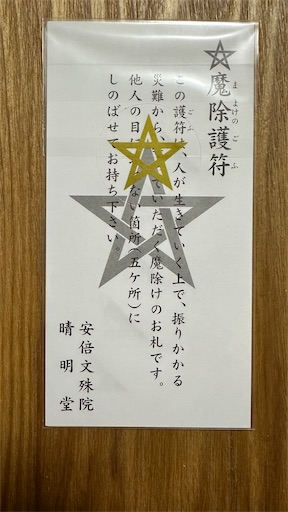 魔除護符
この護符は、人が生きていく上で、振りかかる
災難から、ていただく魔除けのお札です。
他人の目にない箇所(五ケ所)に
しのばせてお持ち下さい
安倍文殊院
晴明堂